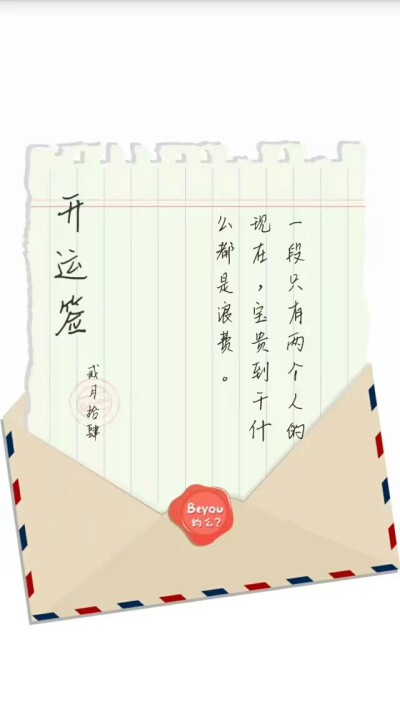 一段只有两个人的
现在，宝贵到干什
么都是浪费。
开运签
贰月拾肆
Beyou
约么?